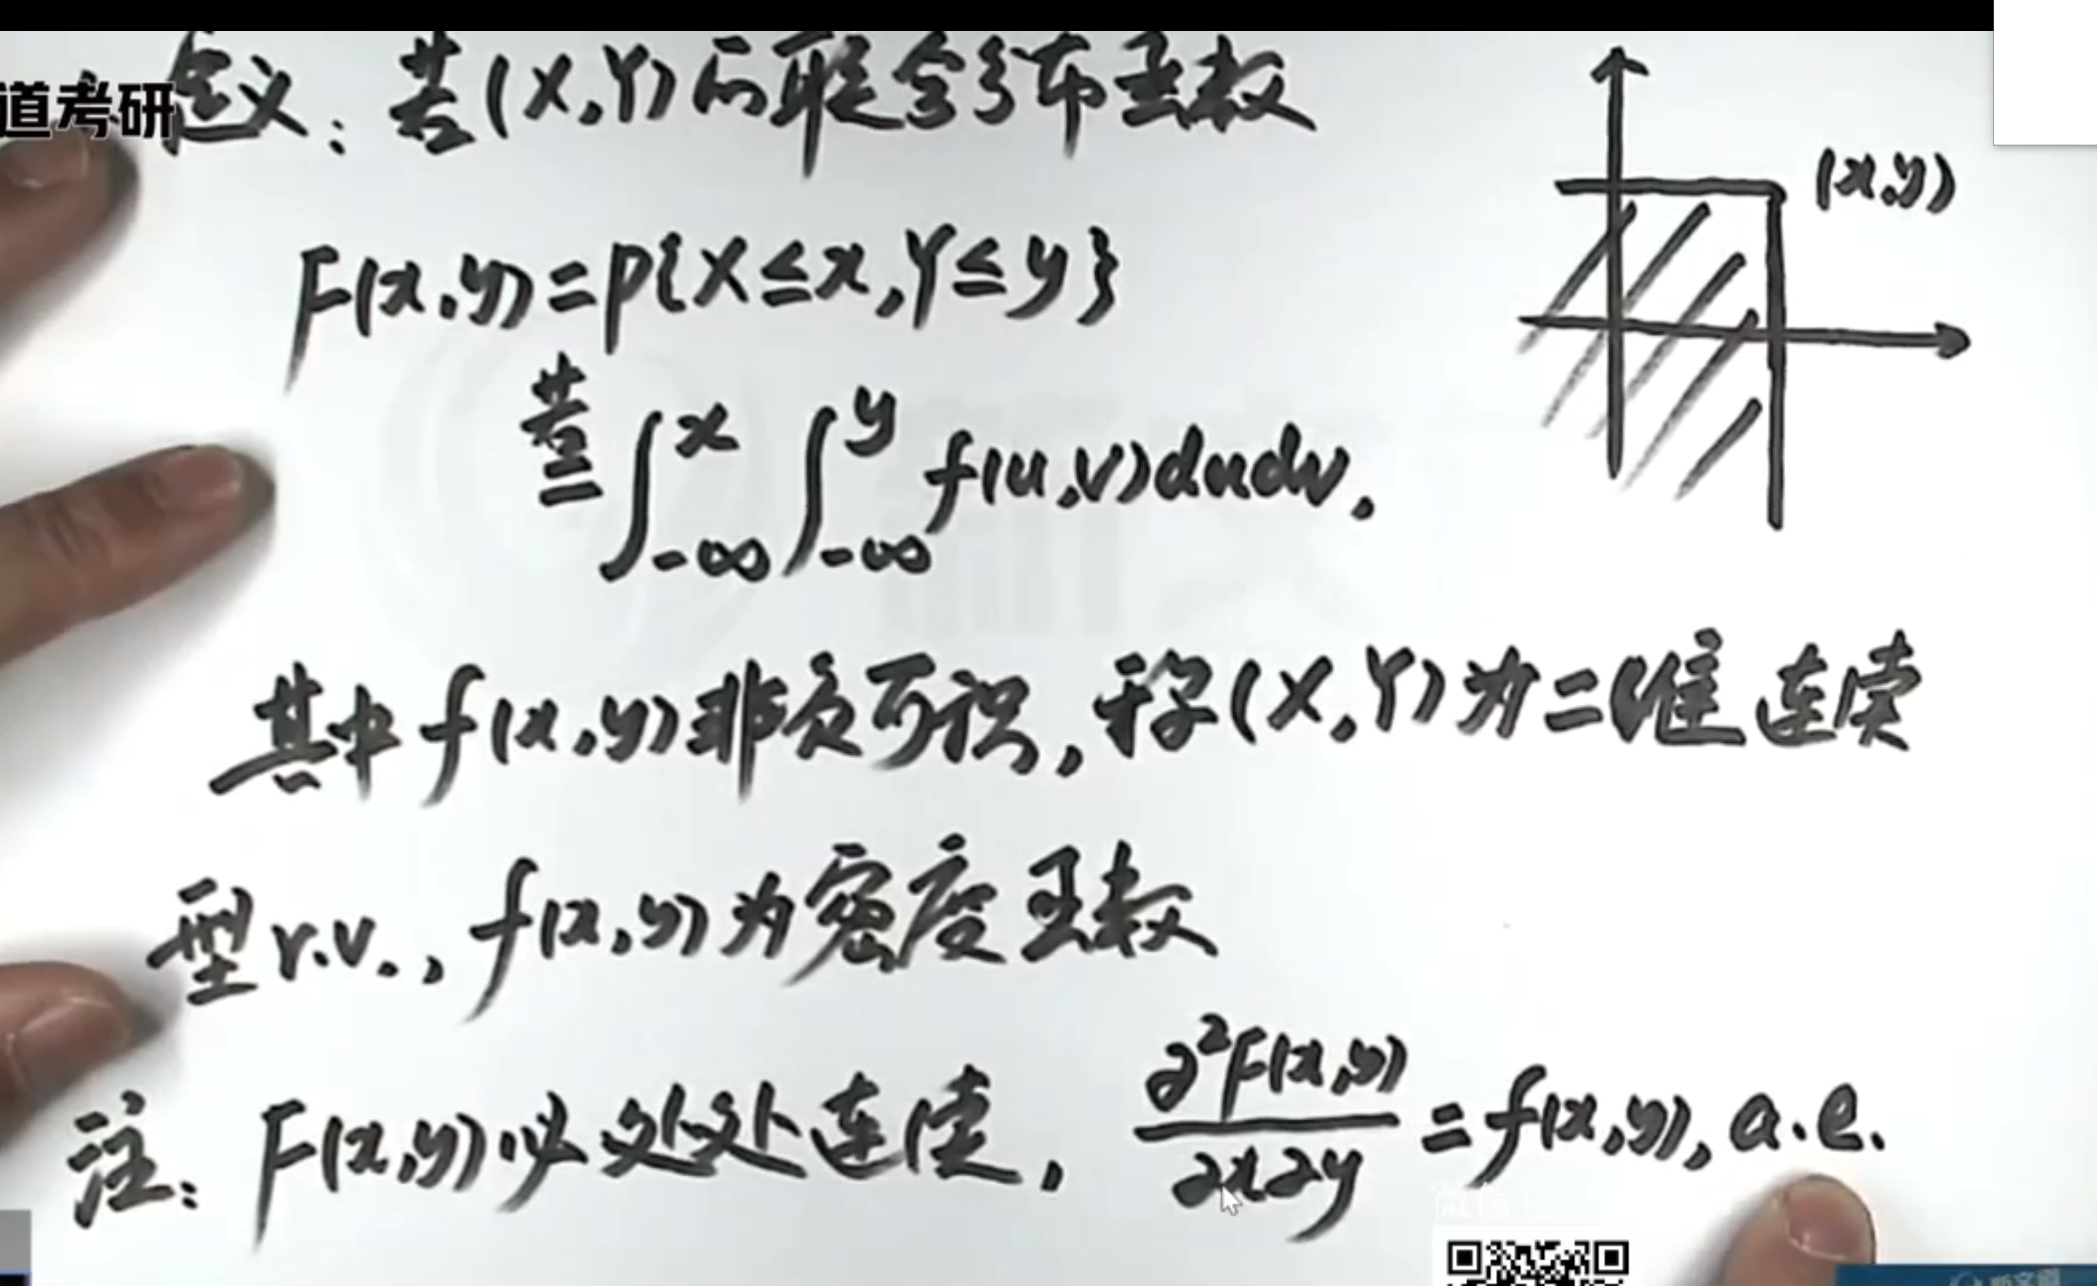 道考研
定义：若(X,Y)的联合分布函数
(x,y)
F(x,y)=P{X≤x,Y≤y}
若= ∫_{-∞}^{x} ∫_{-∞}^{y} f(u,v)dudv.
其中f(x,y)非负可积,称(X,Y)为二维连续
型r.v.,f(x,y)为密度函数
注：F(x,y)必处处连续, ∂²F(x,y)/∂x∂y = f(x,y), a.e.